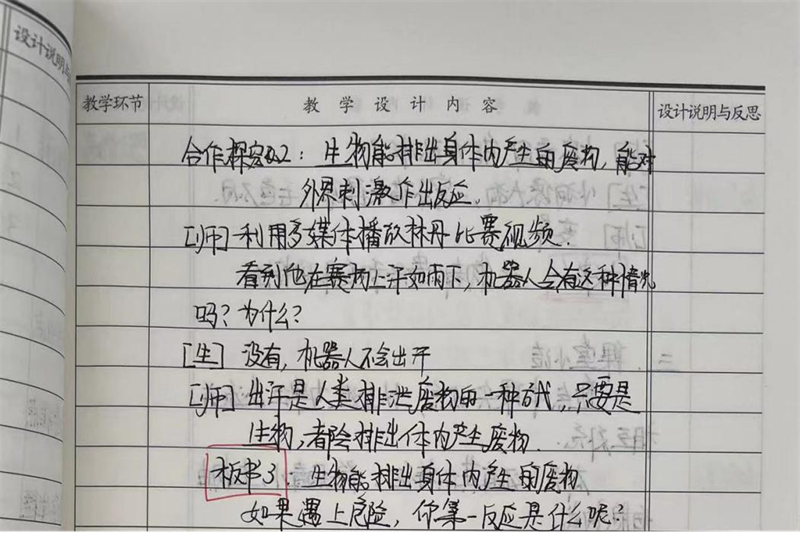 设计说明与
教学环节 教学设计内容 设计说明与反思
合作探究2：生物能排出身体内产生的废物，能对
外界刺激作出反应。
[师] 利用多媒体播放林丹比赛视频.
看到他在赛场上汗如雨下，机器人会有这种情况
吗？为什么？
[生] 没有，机器人不会出汗
[师] 出汗是人类排泄废物的一种方式，只要是
生物，都会排出体内产生废物.
板书3：生物能排出身体内产生的废物
如果遇上危险，你第一反应是什么呢？